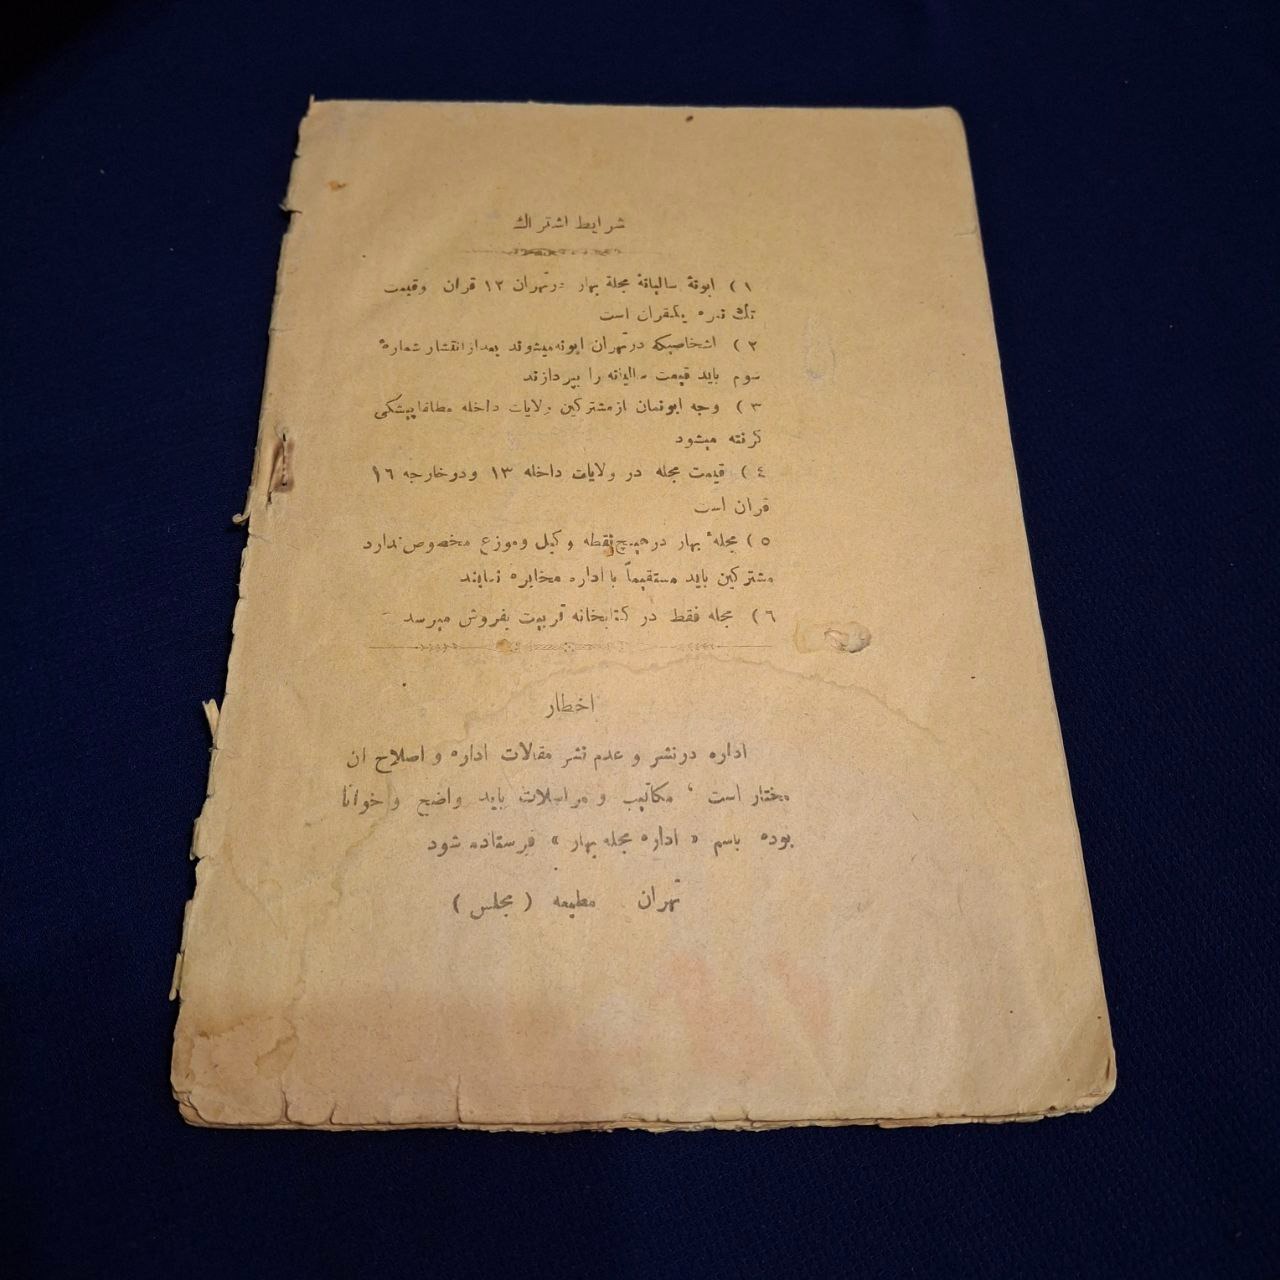 شرایط اشتراك
۱ ) ابونهٔ سالیانهٔ مجلهٔ بهار در تهران ۱۲ قران وقیمت
تك نمره یكقران است
۲ ) اشخاصیكه در تهران ابونه میشوند بعد از انتشار شمارهٔ
سوم باید قیمت سالیانه را بپردازند
۳ ) وجه ابونمان از مشتركین ولایات داخله مطلقا پیشكی
گرفته میشود
٤ ) قیمت مجله در ولایات داخله ۱۳ ودو خارجه ۱٦
قران است
٥ ) مجلهٔ بهار در هیچ نقطه وكیل وموزع مخصوص ندارد
مشتركین باید مستقیماً با اداره مخابره نمایند
٦ ) مجله فقط در كتابخانه تربیت بفروش میرسد
اخطار
اداره در نشر و عدم نشر مقالات اداره و اصلاح ان
مختار است ، مكاتیب و مراسلات باید واضح و خوانا
بوده باسم « اداره مجله بهار » فرستاده شود
تهران مطبعه ( مجلس )